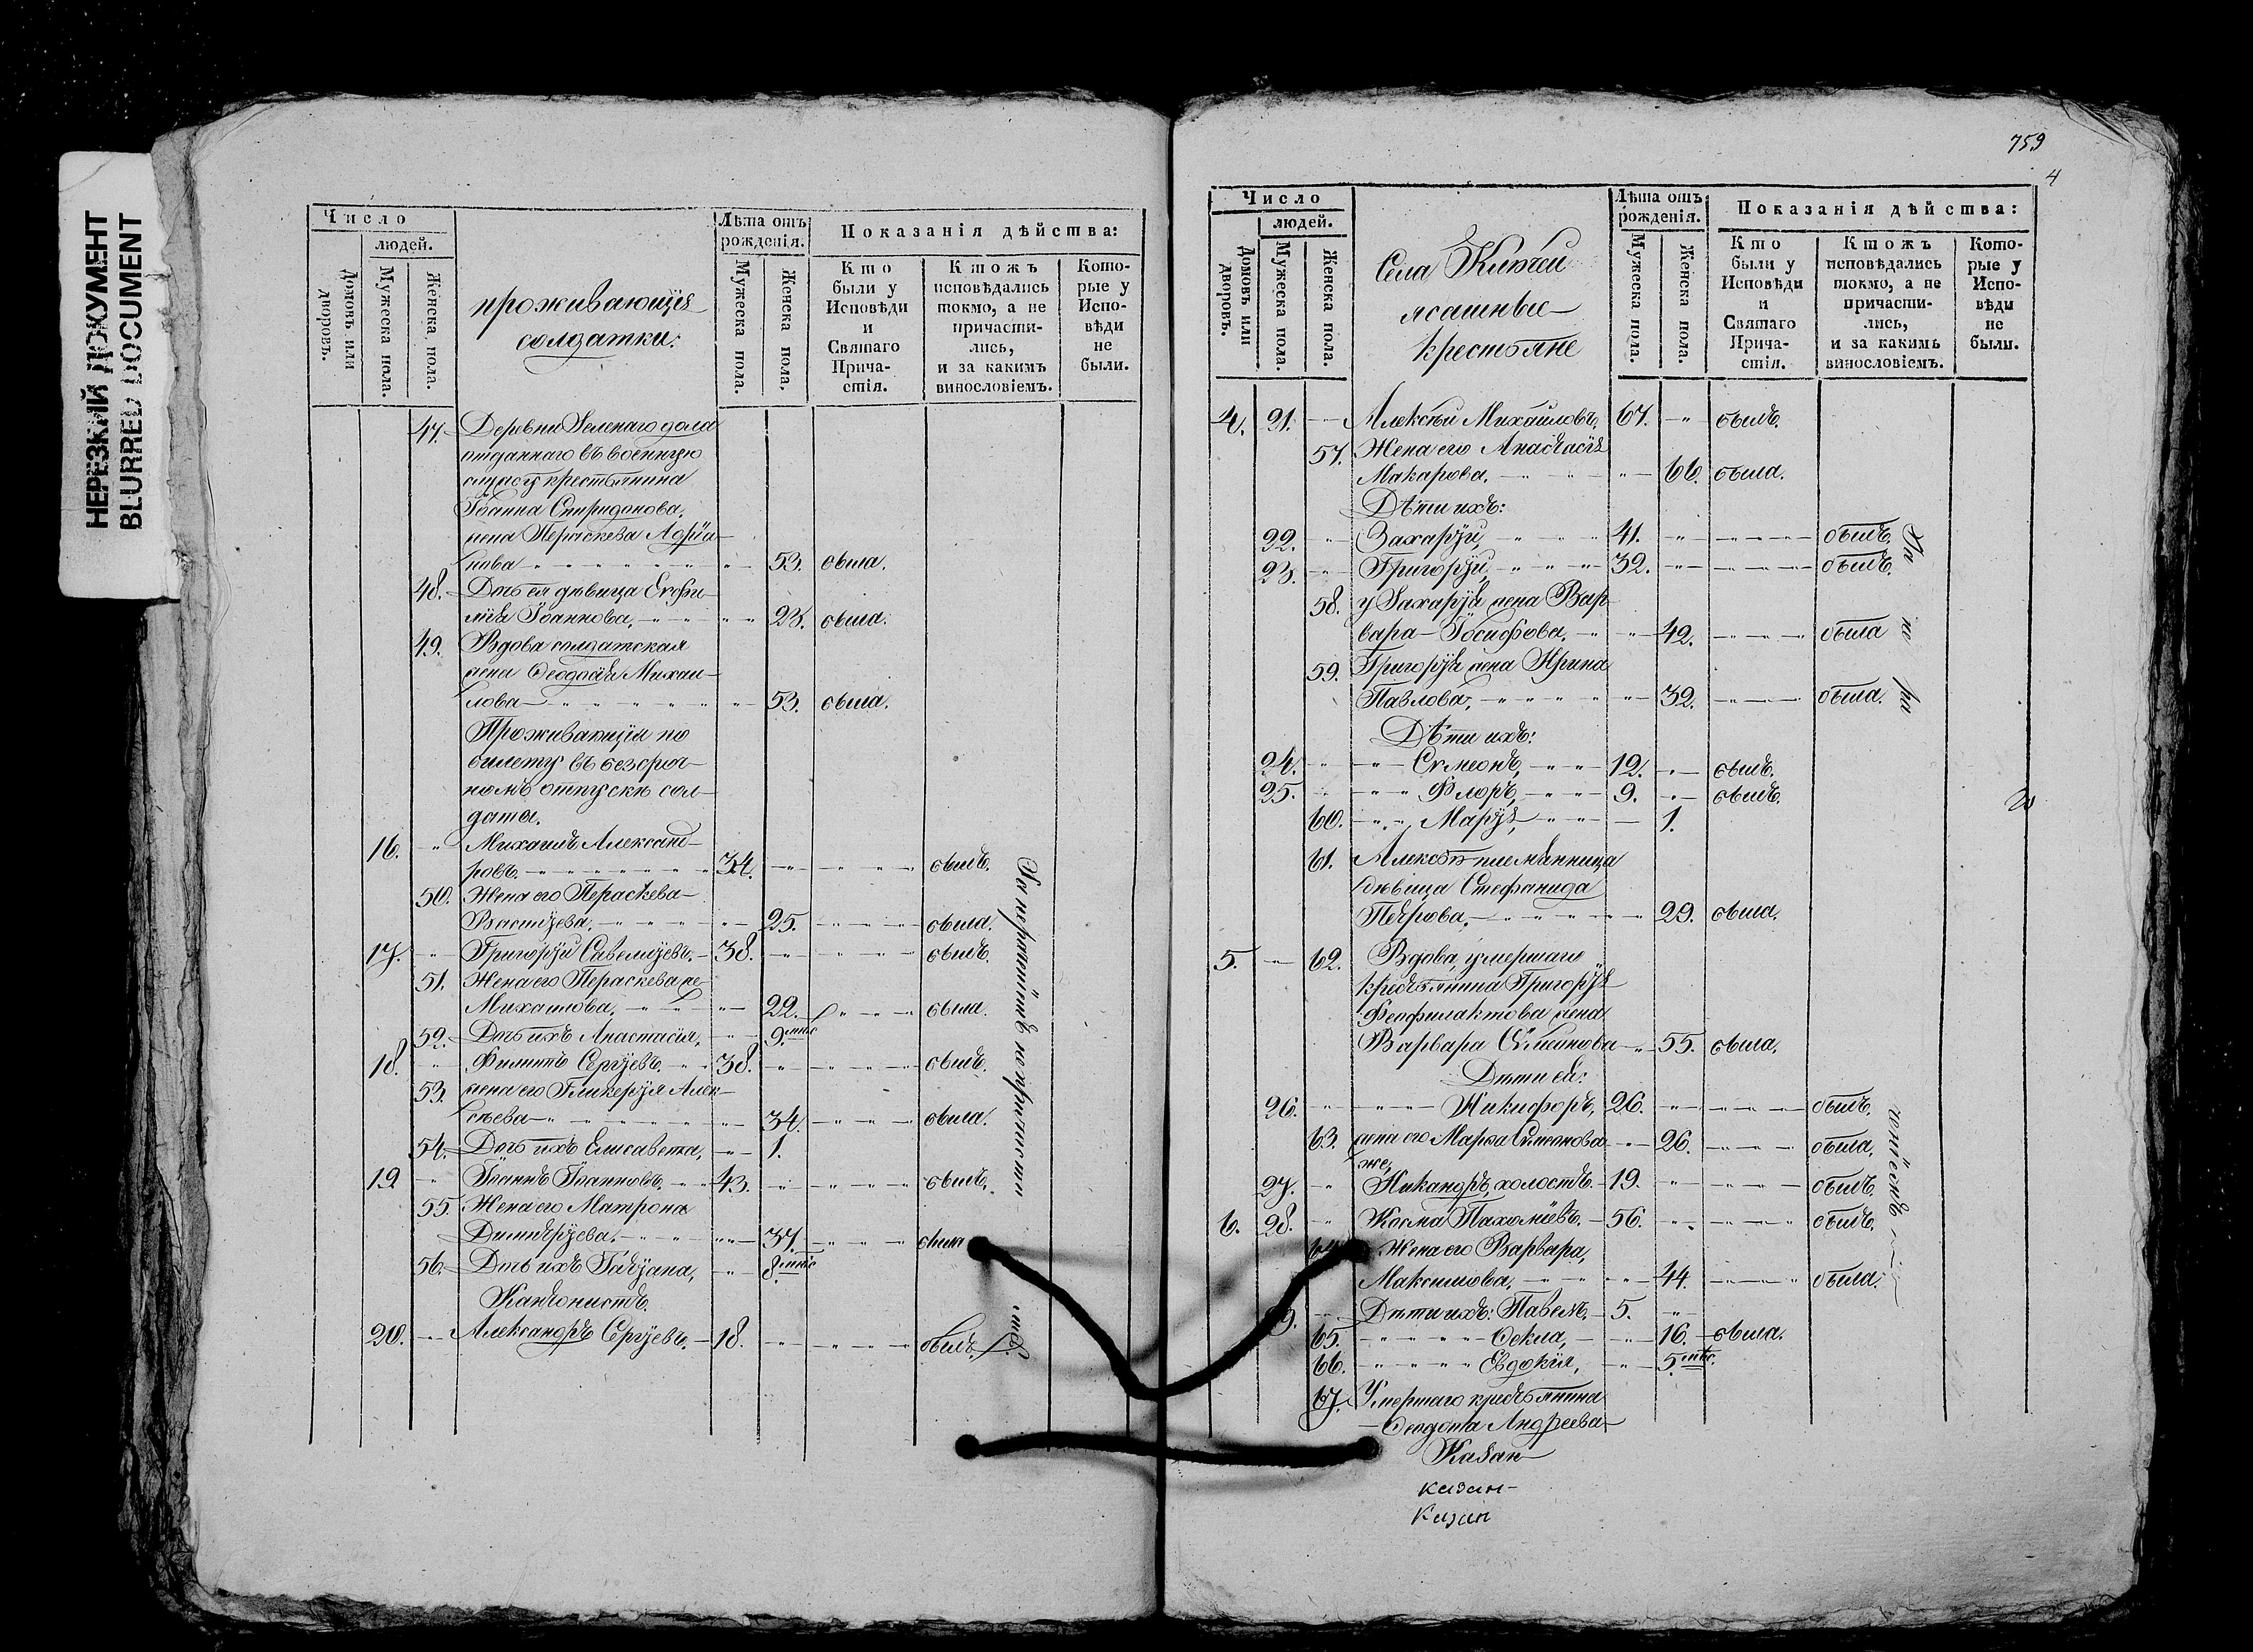 НЕРЕЗКИЙ ДОКУМЕНТ
BLURRED DOCUMENT
Число
людей.
Домовъ или дворовъ.
Мужеска пола.
Женска пола.
проживающія
солдатки:
Лѣта отъ рожденія.
Мужеска пола.
Женска пола.
Показанія дѣйства:
Кто были у Исповѣди и Святаго Прича- стія.
Ктожъ исповѣдались токмо, а не причасти- лись, и за какимъ винословіемъ.
Кото- рые у Испо- вѣди не были.
47. Деревни Зеленаго дола
отданнаго въ военную
службу крестьянина
Іоанна Спиридонова,
жена Параскева Адріа-
нова 53. была.
48. Дочь ея дѣвица Евфи-
мія Іоаннова, 23. была.
49. Вдова солдатская
жена Ѳеодосія Михаи-
лова 53. была.
Проживающіи по
билету въ безсроч-
номъ отпускѣ сол-
даты.
16. Михаилъ Александ-
ровъ. 34. былъ.
50. Жена его Параскева
Василіева, 25. была.
17. Григорій Савеліевъ. 38. былъ.
51. Жена его Параскева же
Михаилова, 22. была.
52. Дочь ихъ Анастасія, 9. мѣс
18. Филиппъ Сергіевъ. 38. былъ.
53. жена его Гликерія Алек-
сѣева 34. была.
54. Дочь ихъ Елисавета, 1.
19 Іоаннъ Іоанновъ. 43. былъ.
55. Жена его Матрона
Димитріева. 37. была
56. Дочь ихъ Татіана, 8. мѣс
Кантонистъ.
20. Александръ Сергіевъ. 18. былъ.
759
4
Число
людей.
Домовъ или дворовъ.
Мужеска пола.
Женска пола.
Села
ясашные
крестьяне
Лѣта отъ рожденія.
Мужеска пола.
Женска пола.
Показанія дѣйства:
Кто были у Исповѣди и Святаго Прича- стія.
Ктожъ исповѣдались токмо, а не причасти- лись, и за какимъ винословіемъ.
Кото- рые у Испо- вѣди не были.
4. 21. Алексѣй Михаиловъ, 67. былъ.
57. Жена его Анастасія
Макарова. 66. была.
Дѣти ихъ:
22. Захарій, 41. былъ.
23. Григорій, 32. былъ.
58. у Захарія жена Вар-
вара Іосифова. 42. была
59. Григорія жена Ирина
Павлова, 32. была.
Дѣти ихъ:
24. Симеонъ, 12. былъ.
25. Флоръ, 9. былъ.
60. Марія, 1.
61. Алексѣя племянница
дѣвица Стефанида
Петрова. 29. была.
5. 62. Вдова, умершаго
крестьянина Григорія
Феофилактова жена
Варвара Симеонова 55. была.
Дѣти ея:
26. Никифоръ, 26. былъ.
63. жена его Марѳа Симеонова 26. была.
же,
27. Никандръ, холостъ. 19. былъ.
6. 28. Косма Пахоміевъ. 56. былъ.
64. Жена его Варвара,
Максимова, 44. была.
29. Дѣти ихъ: Павелъ. 5.
65. Ѳекла, 16. была.
66. Евдокія, 5. мѣс.
67. Умершаго крестьянина
Ѳеодота Андреева
Казан
казан
Казан